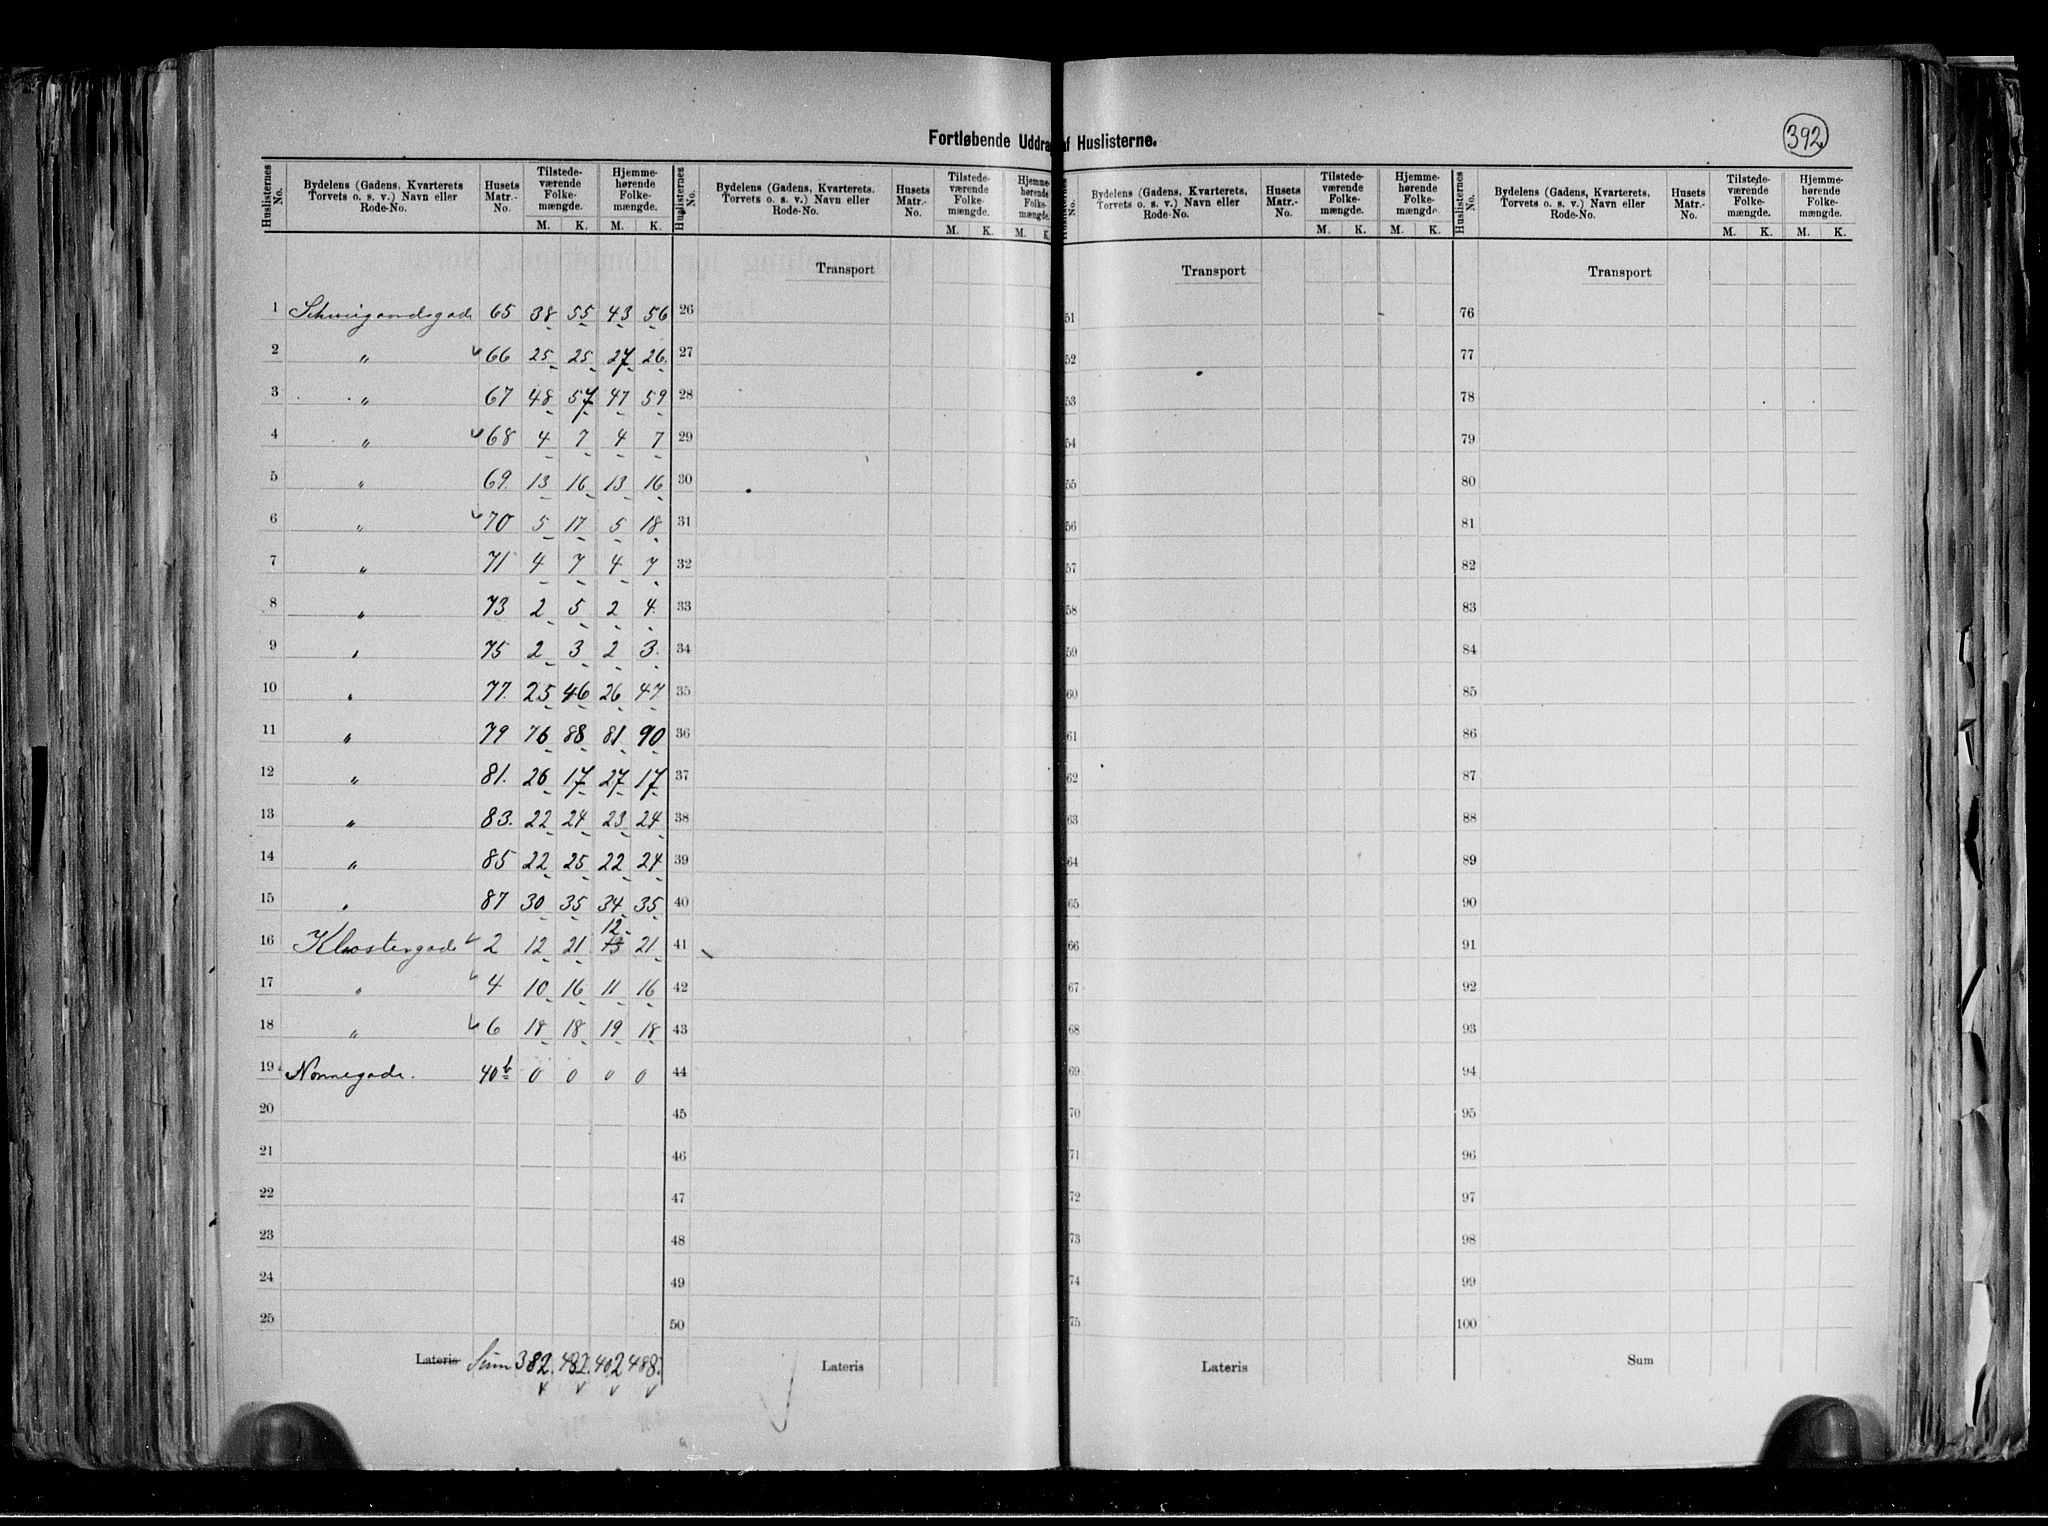 Fortløbende Uddrag af Huslisterne.
392
Huslisternes No. | Bydelens (Gadens, Kvarterets, Torvets o. s. v.) Navn eller Rode-No. | Husets Matr.-No. | Tilstedeværende Folkemængde. M. K. | Hjemmehørende Folkemængde. M. K.
1 Schweigaardsgade 65 38 55 43 56
2 " 66 25 25 27 26
3 " 67 48 57 47 59
4 " 68 4 7 4 7
5 " 69 13 16 13 16
6 " 70 5 17 5 18
7 " 71 4 7 4 7
8 " 73 2 5 2 4
9 " 75 2 3 2 3
10 " 77 25 46 26 47
11 " 79 76 88 81 90
12 " 81 26 17 27 17
13 " 83 22 24 23 24
14 " 85 22 25 22 24
15 " 87 30 35 34 35
16 Klostergade 2 12 21 12 13 21
17 " 4 10 16 11 16
18 " 6 18 18 19 18
19 Nonnegade. 40b 0 0 0 0
20
21
22
23
24
25
Lateris Sum 382 482 402 488
Huslisternes No. | Bydelens (Gadens, Kvarterets, Torvets o. s. v.) Navn eller Rode-No. | Husets Matr.-No. | Tilstedeværende Folkemængde. M. K. | Hjemmehørende Folkemængde. M. K.
Transport
26
27
28
29
30
31
32
33
34
35
36
37
38
39
40
41
42
43
44
45
46
47
48
49
50
Lateris
Huslisternes No. | Bydelens (Gadens, Kvarterets, Torvets o. s. v.) Navn eller Rode-No. | Husets Matr.-No. | Tilstedeværende Folkemængde. M. K. | Hjemmehørende Folkemængde. M. K.
Transport
51
52
53
54
55
56
57
58
59
60
61
62
63
64
65
66
67
68
69
70
71
72
73
74
75
Lateris
Huslisternes No. | Bydelens (Gadens, Kvarterets, Torvets o. s. v.) Navn eller Rode-No. | Husets Matr.-No. | Tilstedeværende Folkemængde. M. K. | Hjemmehørende Folkemængde. M. K.
Transport
76
77
78
79
80
81
82
83
84
85
86
87
88
89
90
91
92
93
94
95
96
97
98
99
100
Sum